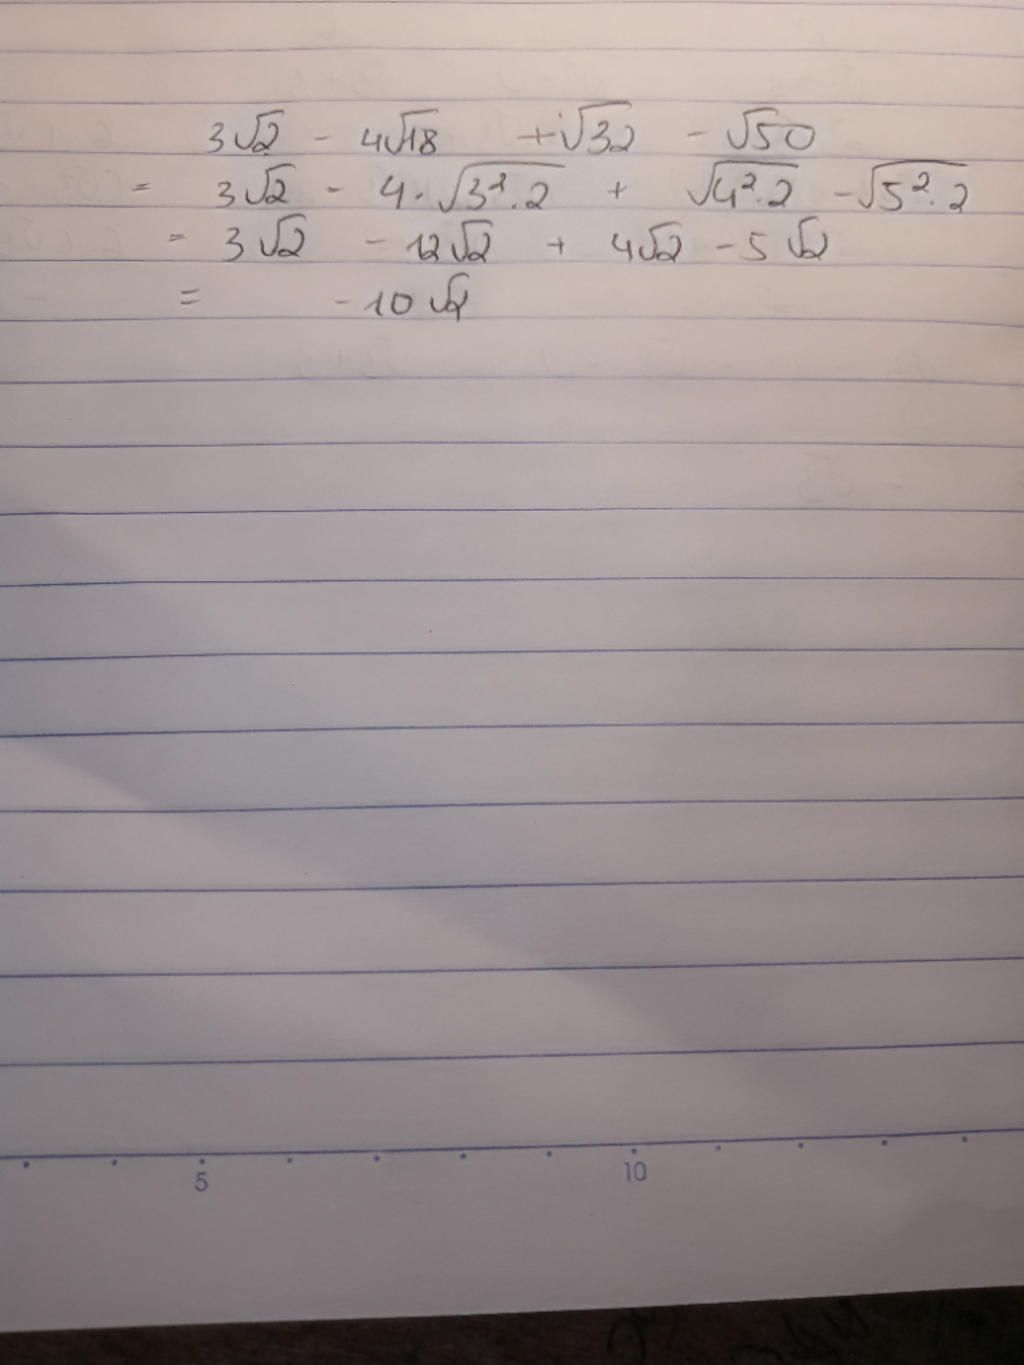 3√2 - 4√18 + √32 - √50
= 3√2 - 4.√3².2 + √4².2 - √5².2
= 3√2 - 12√2 + 4√2 - 5√2
= -10√2
5 10